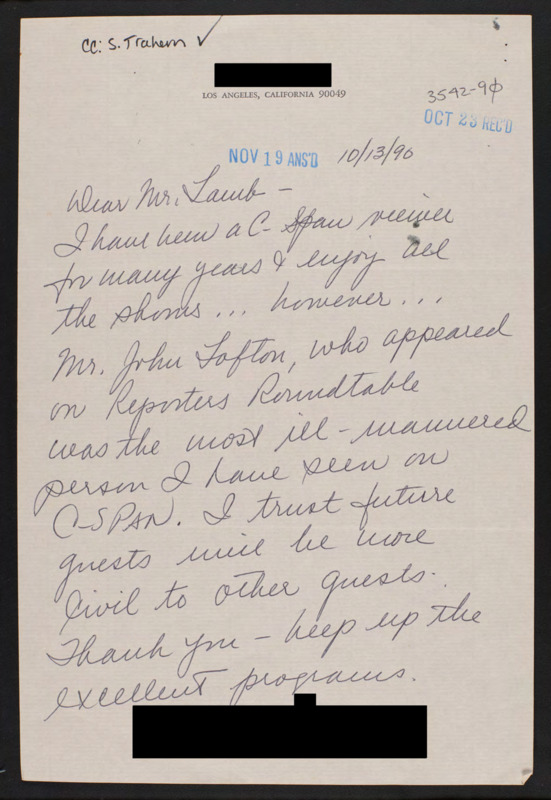 cc: S. Trahern ✓
LOS ANGELES, CALIFORNIA 90049
3542-9φ
OCT 23 REC'D
NOV 19 ANS'D 10/13/90
Dear Mr. Lamb -
I have been a C-Span viewer
for many years & enjoy all
the shows ... however ...
Mr. John Lofton, who appeared
on Reporters Roundtable
was the most ill-mannered
person I have seen on
C-SPAN. I trust future
guests will be more
civil to other guests.
Thank you - keep up the
excellent programs.